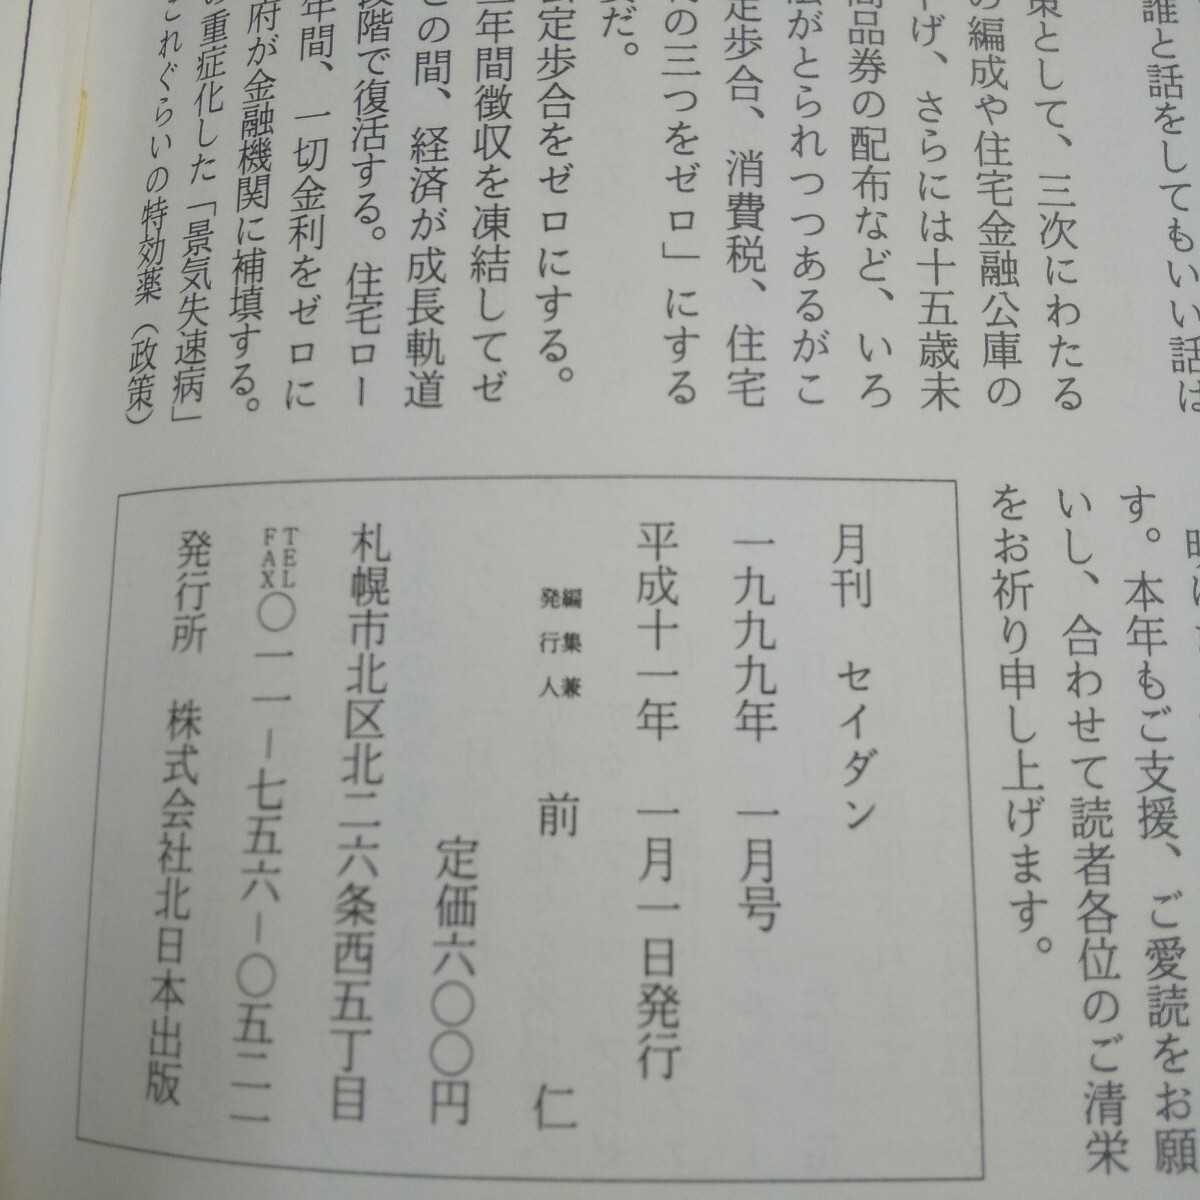 誰と話をしてもいい話は
策として、三次にわたる
の編成や住宅金融公庫の
げ、さらには十五歳未
商品券の配布など、いろ
がとられつつあるがこ
定歩合、消費税、住宅
の三つをゼロ」にする
だ。
定歩合をゼロにする。
年間徴収を凍結してゼ
の間、経済が成長軌道
段階で復活する。住宅ロー
年間、一切金利をゼロに
府が金融機関に補填する。
重症化した「景気失速病」
これぐらいの特効薬（政策）
す。本年もご支援、ご愛読をお願
いし、合わせて読者各位のご清栄
をお祈り申し上げます。
月刊　セイダン
一九九九年　一月号
平成十一年　一月一日発行
編集兼
発行人　前　仁
定価六〇〇円
札幌市北区北二六条西五丁目
TEL
FAX〇一一－七五六－〇五二一
発行所　株式会社北日本出版